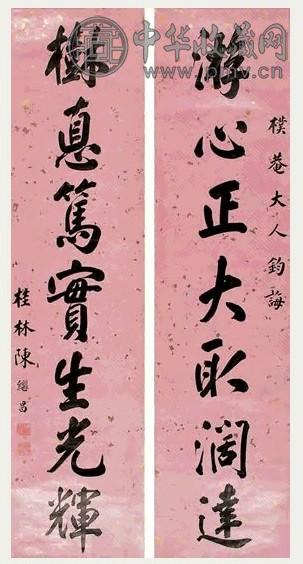 中华收藏网
樸菴大人鈞誨
游心正大取濶達
樹惪篤實生光輝
桂林陳繼昌